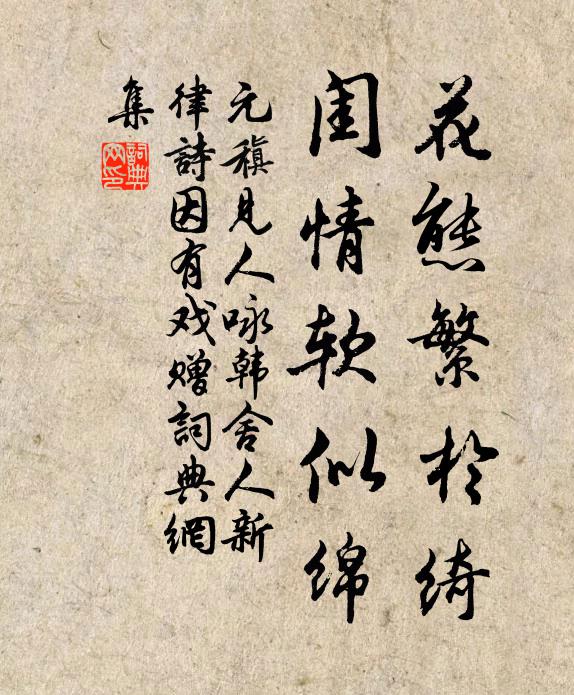 花態繁於綺
闺情软似绵
元稹見人咏韩舍人新
律詩因有戏赠詞典網
集
詞典網印